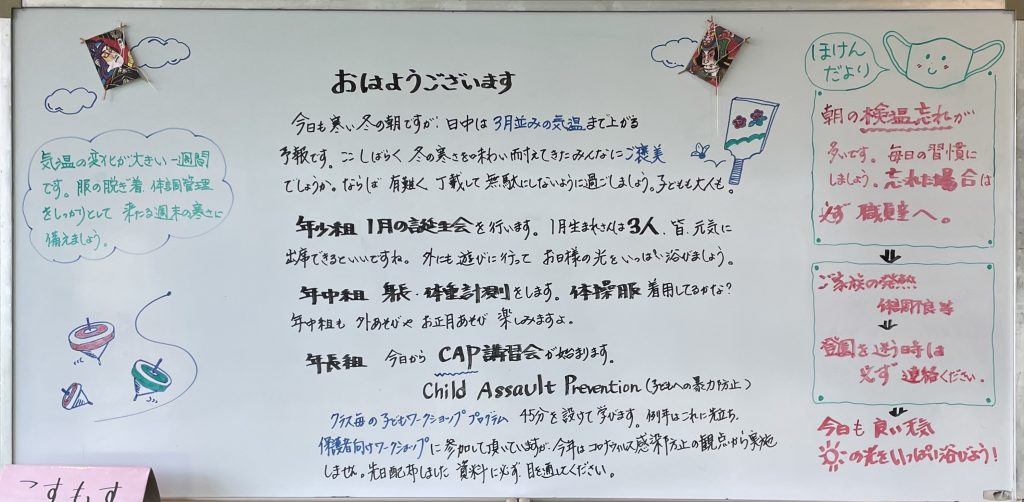 おはようございます
今日も寒い冬の朝ですが、日中は3月並みの気温まで上がる
予報です。ここしばらく冬の寒さを味わい耐えてきたみんなにご褒美
でしょうか。ならば有難く丁載して無駄にしないように過ごしましょう。子どもも大人も。
年少組 1月の誕生会を行います。1月生まれさんは3人、皆、元気に
出席できるといいですね。外にも遊びに行ってお日様の光をいっぱい浴びましょう。
年中組 身長・体重計測をします。体操服着用してるかな?
年中組も外あそびやお正月あそび楽しみますよ。
年長組 今日からCAP講習会が始まります。
Child Assault Prevention(子どもへの暴力防止)
クラス毎の子どもワークショッププログラム 45分を設けて学びます。例年はこれに先立ち、
保護者向けワークショップに参加して頂いていますが、今年はコロナウィルス感染防止の観点から実施
しません。先日配布しました資料に必ず目を通してください。
気温の変化が大きい一週間
です。服の脱ぎ着、体調管理
をしっかりとして来たる週末の寒さに
備えましょう。
ほけん
だより
朝の検温忘れが
多いです。毎日の習慣に
しましょう。忘れた場合は
必ず職員室へ。
ご家族の発熱
体調不良等
登園を迷う日時は
必ず連絡ください。
今日も良い天気
の光をいっぱい浴びよう!
こすもす